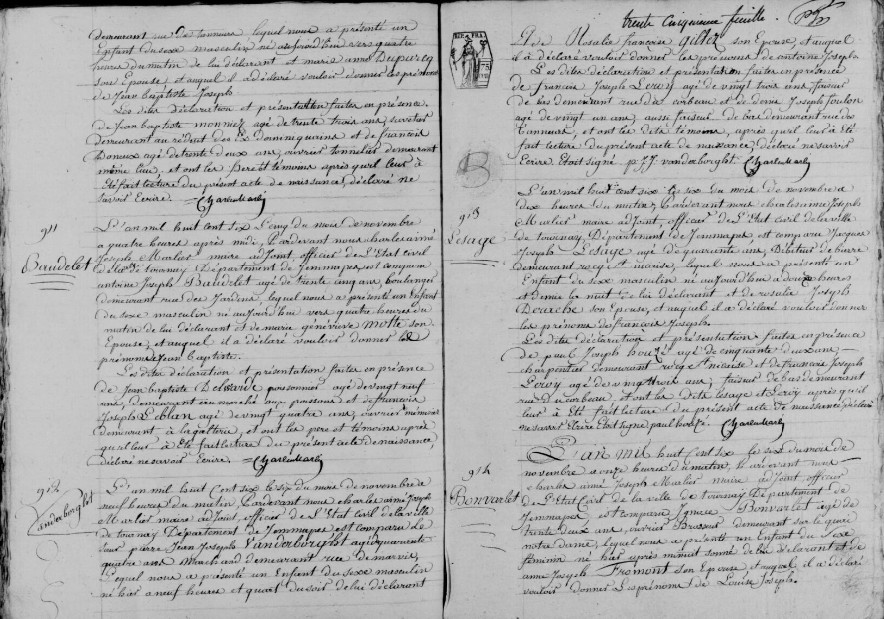 Demeurant rue des tanneurs, lequel nous a présenté un
Enfant du sexe masculin né aujourd'hui vers quatre
heures du matin de lui déclarant et marie anne Dupureq
son Epouse et auquel il a déclaré vouloir donner les prénoms
de Jean baptiste Joseph
Les dites déclaration et présentation faites en présence
de Jean baptiste moniez agé de trente trois ans,
demeurant au réduit des Ex Dominiquains et de françois
agé de trente deux ans, ouvrier tonnelier demeurant
même lieu, et ont les Pere et témoins après qu'il leur a
Eté fait lecture du présent acte de naissance, déclaré ne
savoir Ecrire.
911
Baudelet
L'an mil huit cent six le cinq du mois de novembre
a quatre heures après midi, Pardevant nous charles aimé
Joseph Marlier maire adjoint officier de l'Etat Civil
de la ville de tournay Département de Jemmapes, est comparu
antoine Joseph Baudelet agé de trente cinq ans, boulanger
demeurant rue des Jardins, lequel nous a présenté un Enfant
du sexe masculin né aujourd'hui vers quatre heures du
matin de lui déclarant et de marie génévieve Motte son
Epouse, et auquel il a déclaré vouloir donner les
prénoms de Jean Baptiste.
Les dites déclaration et présentation faites en présence
de Jean baptiste Delavide poissonnier agé de vingt neuf
ans, demeurant au marché aux poissons et de françois
Joseph Leblan agé de vingt quatre ans, ouvrier
demeurant à la galterie, et ont les pere et témoins après
qu'il leur a Eté fait lecture du présent acte de naissance,
déclaré ne savoir Ecrire.
912
Vanderborght
L'an mil huit Cent six le six du mois de novembre a
neuf heures du matin, Pardevant nous charles aimé Joseph
Marlier maire adjoint, officier de l'Etat Civil de la ville
de tournay Département de Jemmapes est comparu Le
Sieur pierre Jean Joseph Vanderborght agé de quarante
quatre ans Marchand demeurant rue de marvis,
lequel nous a présenté un Enfant du sexe masculin
né hier a neuf heures et quart du soir de lui déclarant
trente cinquieme feuille.
Et de Rosalie françoise Gillez son Epouse, et auquel
il a déclaré vouloir donner les prénoms de antoine Joseph.
Les dites déclaration et présentation faites en présence
de françois Joseph Lovy agé de vingt trois ans, faiseur
de bas demeurant rue du corbeau et de Joseph Joulon
agé de vingt un ans, aussi faiseur de bas demeurant rue des
tanneurs, et ont les dits témoins, après qu'il leur a Eté
fait lecture du présent acte de naissance, déclaré ne savoir
Ecrire. Etoit signé p. J. J vanderborght.
913
Lesage
L'an mil huit cent six le six du mois de novembre a
dix heures du matin, Pardevant nous charles aimé Joseph
Marlier maire adjoint, officier de l'Etat Civil de la ville
de tournay, Département de Jemmapes, est comparu Jacques
Joseph Lesage agé de quarante ans, Débiteur de bierre
demeurant recq St nicaise, lequel nous a présenté un
Enfant du sexe masculin né aujourd'hui a douze heures
et demie la nuit de lui déclarant et de rosalie Joseph
Deroche son Epouse, et auquel il a déclaré vouloir donner
les prénoms de françois Joseph.
Les dites déclaration et présentation faites en présence
de paul Joseph houzé agé de cinquante deux ans,
charpentier demeurant recq St nicaise et de françois Joseph
Lovy agé de vingt trois ans, faiseur de bas demeurant
rue du corbeau, et ont les dits lesage et Lovy après qu'il
leur a Eté fait lecture du présent acte de naissance déclaré
ne savoir Ecrire Etoit signé paul houzé.
914
Bonvarlet
L'an mil huit cent six le six du mois de
novembre a onze heures du matin, Pardevant nous
charles aimé Joseph Marlier maire adjoint officier
de l'Etat Civil de la ville de tournay Département de
Jemmapes est comparu Ignace Bonvarlet agé de
trente deux ans, ouvrier Brasseur demeurant sur le quai
notre dame, lequel nous a présenté un Enfant du Sexe
féminin né hier après minuit sonné de lui déclarant et de
anne Joseph Fremont son Epouse et auquel il a déclaré
vouloir donner les prénoms de Louise Joseph.